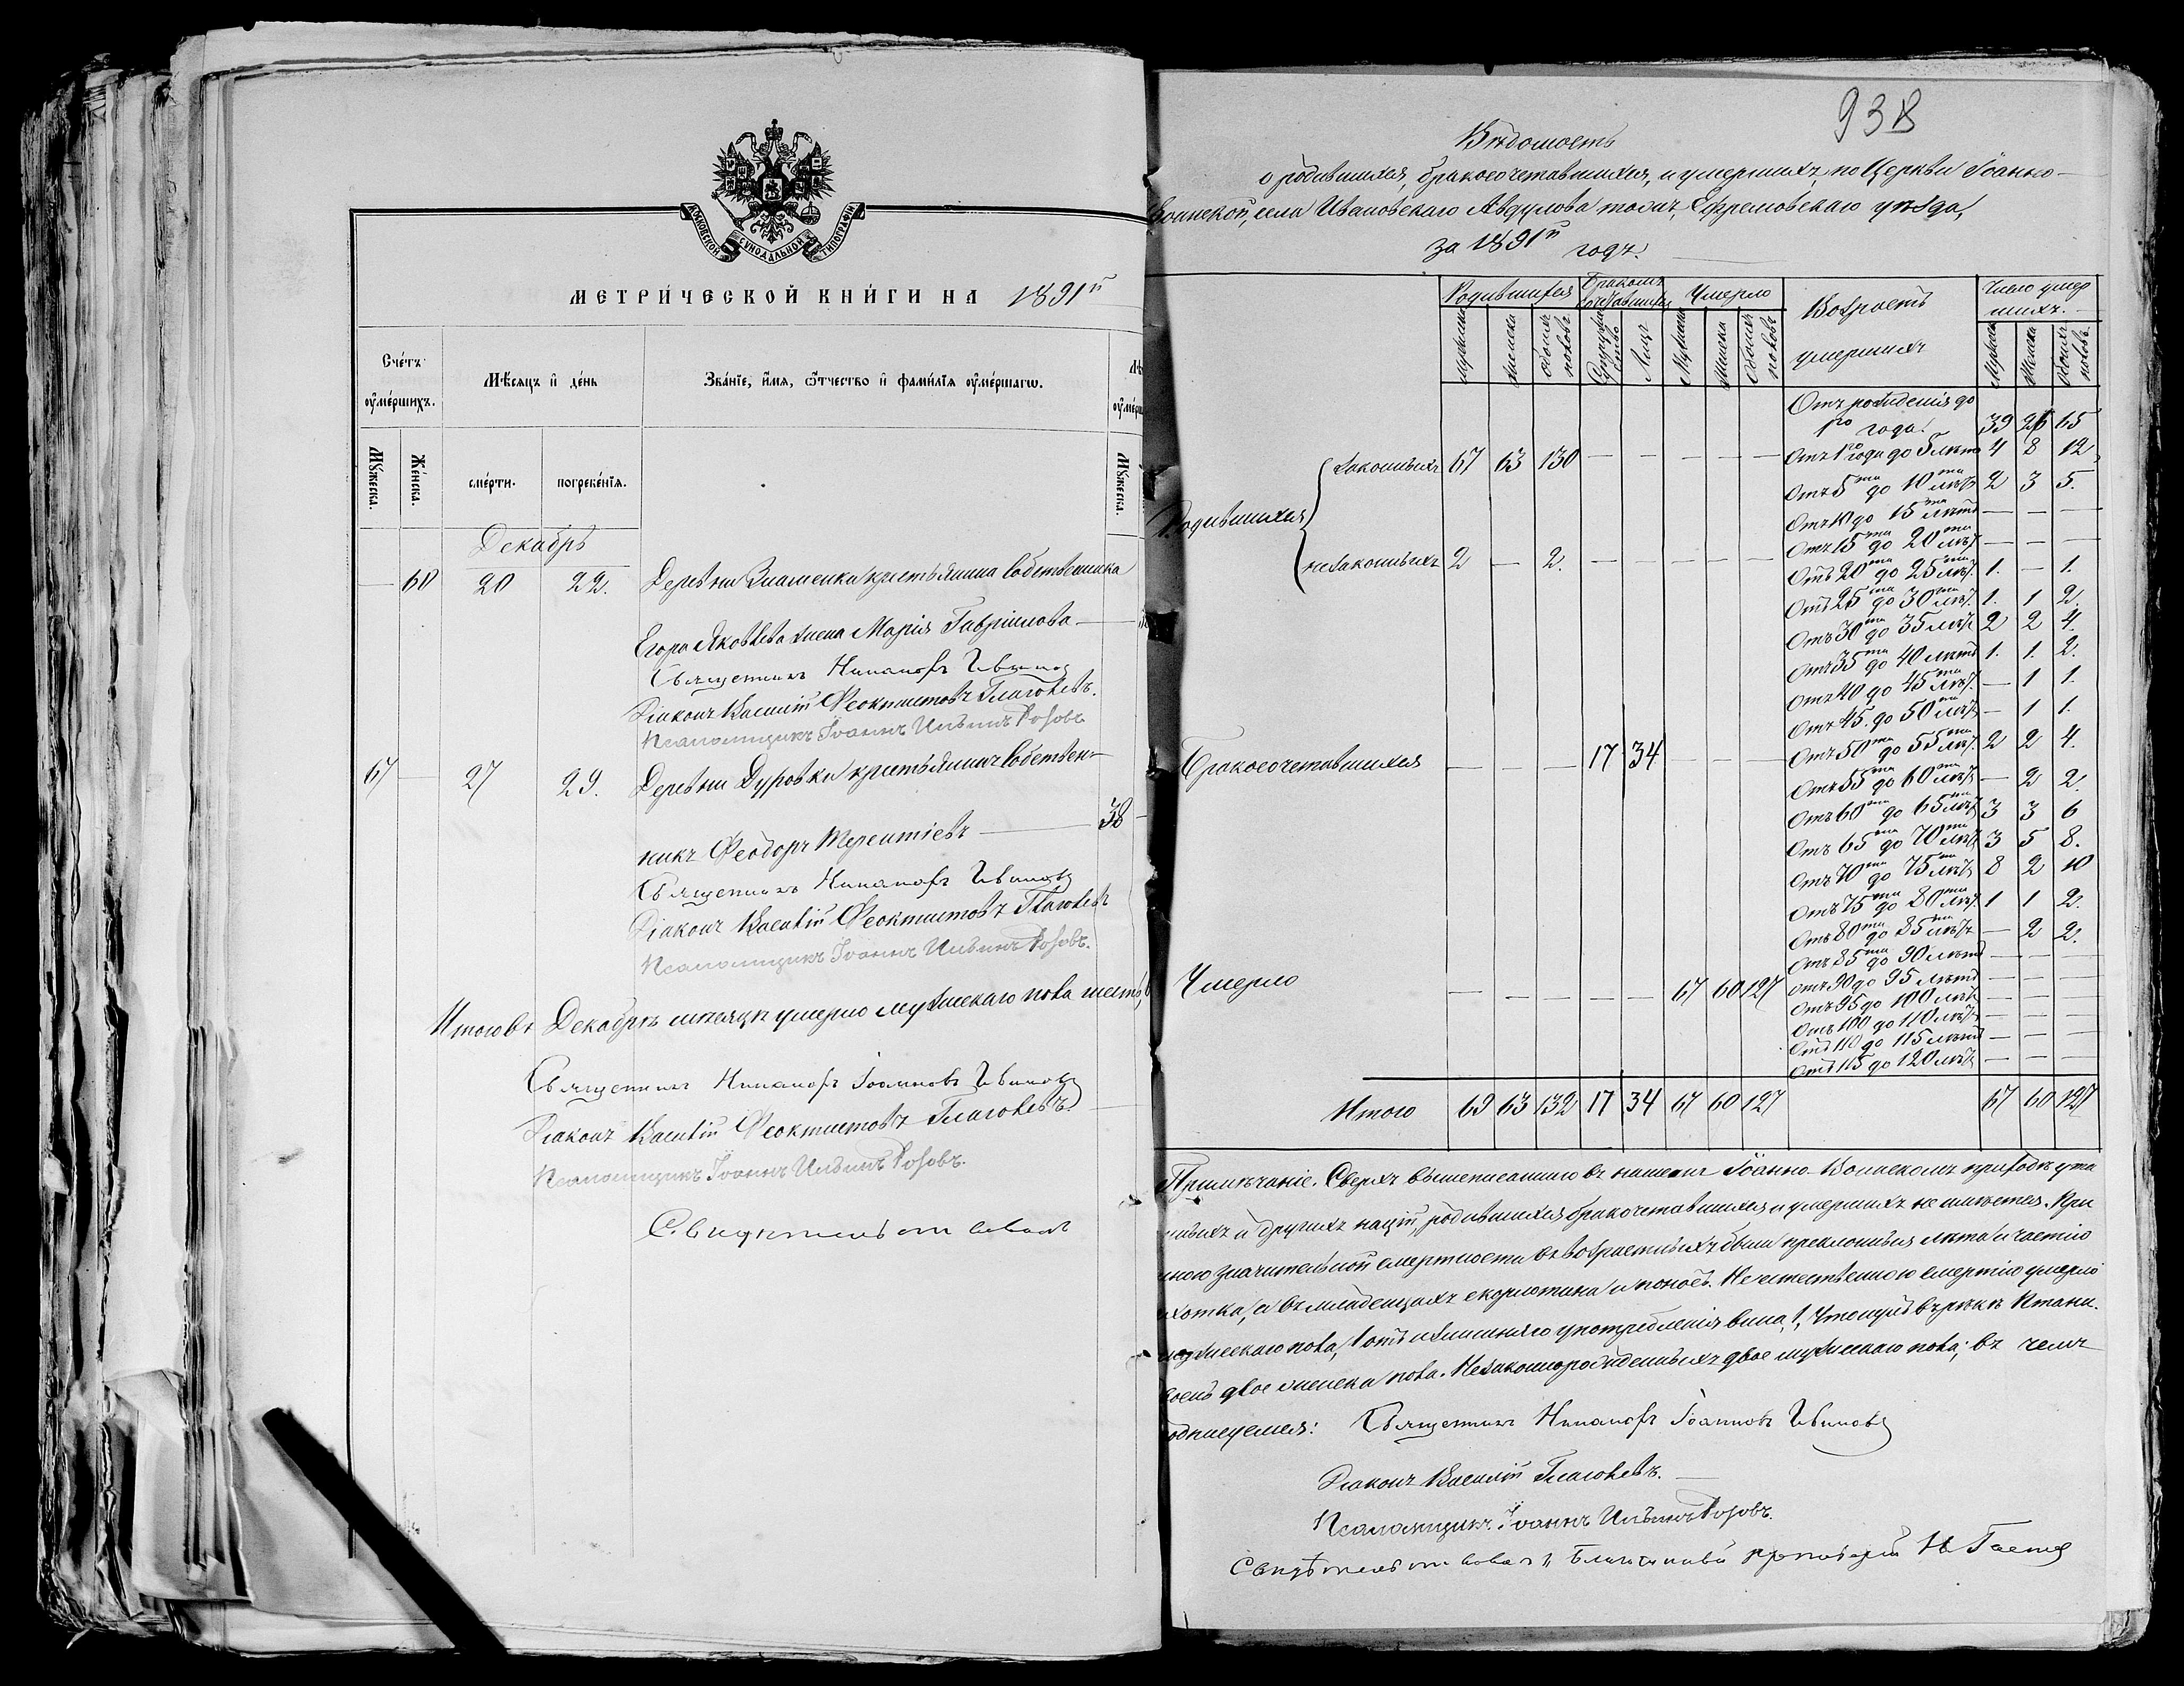 МОСКОВСКОЙ СѴНОДАЛЬНОЙ ТИПОГРАФІИ
МЕТРИ́ЧЕСКОЙ КНИ́ГИ НА 1891й
Сче́тъ ᲂу҆ме́ршихъ.
Мѣ́сяцъ и҆ де́нь
Зва́нїе, и҆́мя, ѻ҆́тчество и҆ фами́лїя ᲂу҆ме́ршагѡ.
Мꙋ́жеска.
Же́нска.
сме́рти.
погребе́нїя.
Мꙋ́жеска.
Декабрь
— 60 20 22. Деревни Знаменки крестьянина собственника
Егора Яковлева жена Марія Гавріилова —
Священникъ Никаноръ Ивановъ
Діаконъ Василій Феоктистовъ Глаголевъ.
Псаломщикъ Іоаннъ Ильинъ Розовъ
67 — 27 29. Деревни Дуровки крестьянинъ собствен-
никъ Феодоръ Терентіевъ — 38 —
Священникъ Никаноръ Ивановъ
Діаконъ Василій Феоктистовъ Глаголевъ
Псаломщикъ Іоаннъ Ильинъ Розовъ.
Итого въ Декабрѣ мѣсяцѣ умерло мужескаго пола шесть,
Священникъ Никаноръ Іоанновъ Ивановъ
Діаконъ Василій Феоктистовъ Глаголевъ.
Псаломщикъ Іоаннъ Ильинъ Розовъ.
Свидѣтельствовалъ
938
Вѣдомость
о родившихся, бракосочетавшихся, и умершихъ, по Церкви Іоанно-
Воинской, села Ивановскаго Авдулова тожъ, Ефремовскаго уѣзда,
за 1891й годъ.
Родившихся
Бракомъ сочетавшихся
Умерло
Возрастъ умершихъ
Число умершихъ.
мужеска женска обоихъ половъ Супружество Лицъ Мужеска Женска Обоихъ половъ Мужеска Женска Обоихъ половъ.
Отъ рожденія до 1го года. 39 26 65
Родившихся { законныхъ 67 63 130 — — — — —
Отъ 1го года до 5 лѣтъ 4 8 12
Отъ 5ти до 10ти лѣтъ 2 3 5.
Отъ 10 до 15ти лѣтъ — — —
Отъ 15ти до 20ти лѣтъ — — —
незаконныхъ 2 — 2. — — — — —
Отъ 20ти до 25ти лѣтъ. 1. — 1.
Отъ 25ти до 30ти лѣтъ. 1. 1 2.
Отъ 30ти до 35 лѣтъ 2 2 4.
Отъ 35ти до 40 лѣтъ 1. 1. 2.
Отъ 40 до 45ти лѣтъ. — 1 1.
Отъ 45. до 50ти лѣтъ — 1 1.
Бракосочетавшихся — — — 17 34 — — —
Отъ 50ти до 55ти лѣтъ. 2 2 4.
Отъ 55ти до 60ти лѣтъ — 2 2.
Отъ 60ти до 65ти лѣтъ 3 3 6
Отъ 65ти до 70ти лѣтъ 3 5 8.
Отъ 70ти до 75ти лѣтъ 8 2 10
Отъ 75ти до 80ти лѣтъ. 1 1 2.
Отъ 80ти до 85ти лѣтъ — 2 2.
Отъ 85ти до 90 лѣтъ — — —
Умерло — — — — — 67 60 127
Отъ 90 до 95 лѣтъ — — —
Отъ 95 до 100 лѣтъ — — —
Отъ 100 до 110 лѣтъ — — —
Отъ 110 до 115 лѣтъ — — —
Отъ 115 до 120 лѣтъ — — —
Итого 69 63 132 17 34 67 60 127 67 60 127
Примѣчаніе. Сверхъ вышеписанного въ нашемъ Іоанно-Воинскомъ приходѣ
и другихъ націй, родившихся бракочетавшихся и умершихъ не имѣется. При
значительной смертности въ возрастныхъ были преклонныя лѣта и частію
а въ младенцахъ скорлотина и поносъ. Неестественною смертію умерло
мужескаго пола, 1 отъ излишняго употребленія вина, 1, утонулъ въ рѣкѣ Птани.
двое женска пола. Незаконнорожденныхъ двое мужескаго пола; въ чемъ
Священникъ Никаноръ Іоанновъ Ивановъ
Діаконъ Василій Глаголевъ.
Псаломщикъ Іоаннъ Ильинъ Розовъ.
Свидѣтельствовалъ Благочинный